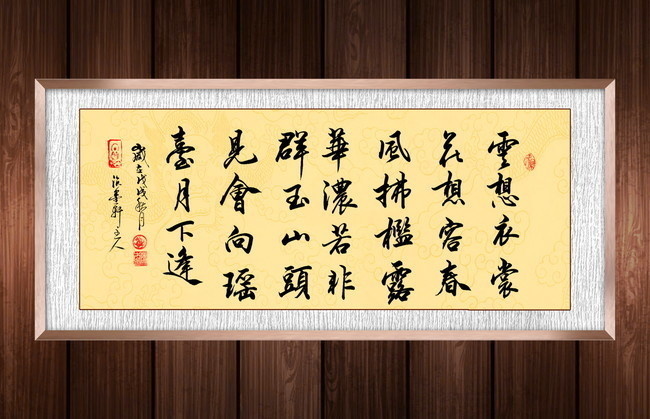 雲想衣裳
花想容春
風拂檻露
華濃若非
群玉山頭
見會向瑤
臺月下逢
歲在戊戌秋月
軒主人